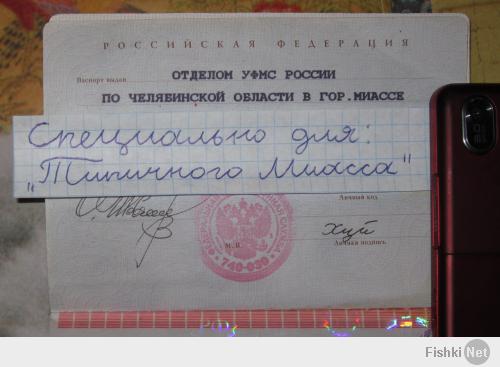 РОССИЙСКАЯ ФЕДЕРАЦИЯ
Паспорт выдан
ОТДЕЛОМ УФМС РОССИИ
ПО ЧЕЛЯБИНСКОЙ ОБЛАСТИ В ГОР.МИАССЕ
Специально для:
„Типичного Миасса"
Личный код
740-030
М.П.
Личная подпись
Fishki Net